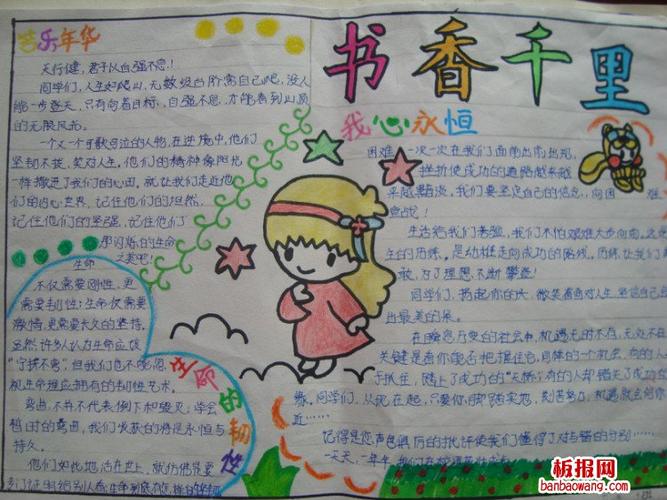 苦乐年华
天行健，君子以自强不息！
同学们，人生好爬山，无数级台阶需自己爬，没人
能一步登天，只有向着目标，自强不息，才能看到山顶
的无限风光。
一个又一个可歌可泣的人物，在逆境中，他们
坚韧不拔，笑对人生，他们的精神像阳光
一样撒进了我们的心田，就让我们走近他
们的心灵世界，记住他们的坦然，
记住他们的坚强，记住他们
那闪烁的生命
之美吧！
生命
不仅需要刚性，更
需要韧性；生命仅需要
激情，更需要长久的坚持。
虽然许多人认为生命应该
"宁折不弯"，但我们也不能忽
视生命理应拥有的韧性艺术。
弯曲，并不代表倒下和毁灭；学会
暂时的弯曲，我们收获的将是永恒与
持久。
生命的韧性
书香千里
我心永恒
困难一次一次在我们面前出而出现，
挫折使成功的道路越来越
来越黯淡，我们要坚定自己的信念，向困难
宣战！
生活给我们考验，我们不怕艰难大步向前。
生的历练，是幼稚走向成功的路线。历练让我们
敢，为了理想，不断攀登！
同学们，扬起你的头，微笑着面对人生，坚信自己
出最美的
在瞬息万变的社会中，机遇无时不在，无处不在
关键是看你能否把握住它，同样的一个机会，有的人
于抓住，踏上了成功的"天桥"；有的人却错失了成功
练，同学们，从现在起，只要你脚踏实地，刻苦努力，机遇就会向你
近……
记得是您，声色俱厉的批评使我们懂得了对与错的分别……
一天天，一年年，我们在
板报网
banbaowang.com